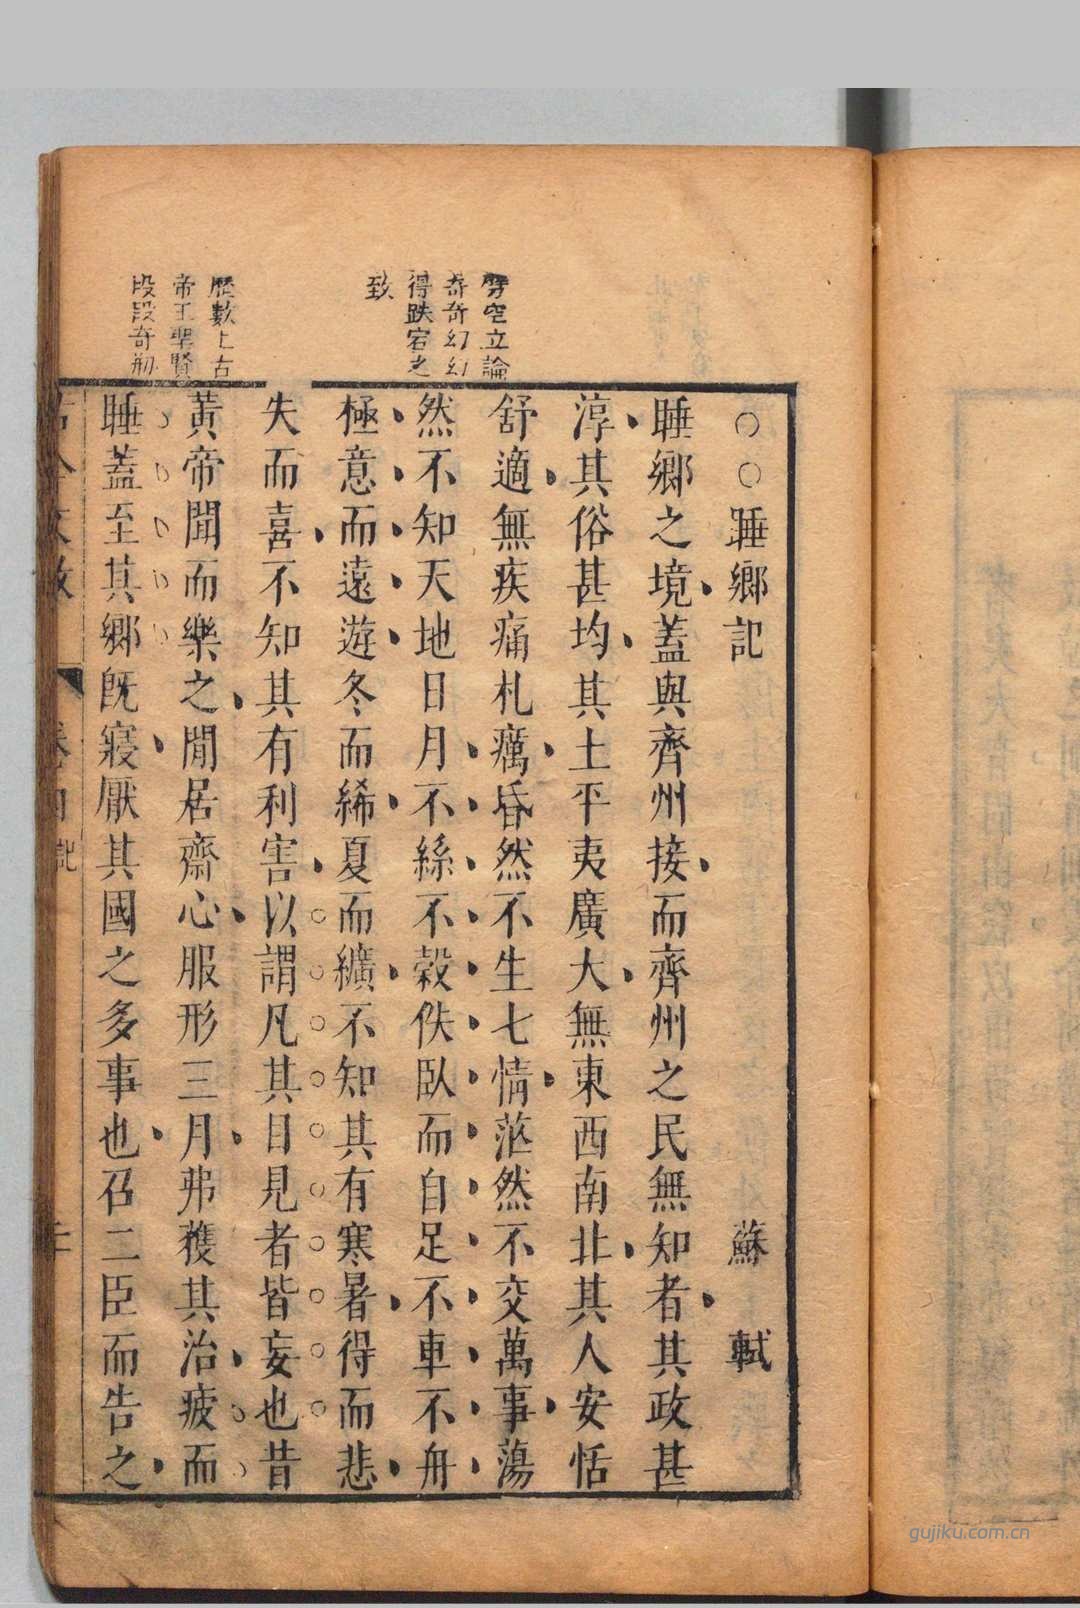 劈空立論
奇奇幻幻
得跌宕之
致
歷數上古
帝王聖賢
段段奇刱
○○睡鄉記 蘇軾
睡鄉之境蓋與齊州接而齊州之民無知者其政甚
淳其俗甚均其土平夷廣大無東西南北其人安恬
舒適無疾痛札癘昏然不生七情茫然不交萬事蕩
然不知天地日月不絲不穀佚臥而自足不車不舟
極意而遠遊冬而絺夏而纊不知其有寒暑得而悲
失而喜不知其有利害以謂凡其目見者皆妄也昔
黃帝聞而樂之閒居齋心服形三月弗獲其治疲而
睡蓋至其鄉旣寢厭其國之多事也召二臣而告之
gujiku.com.cn